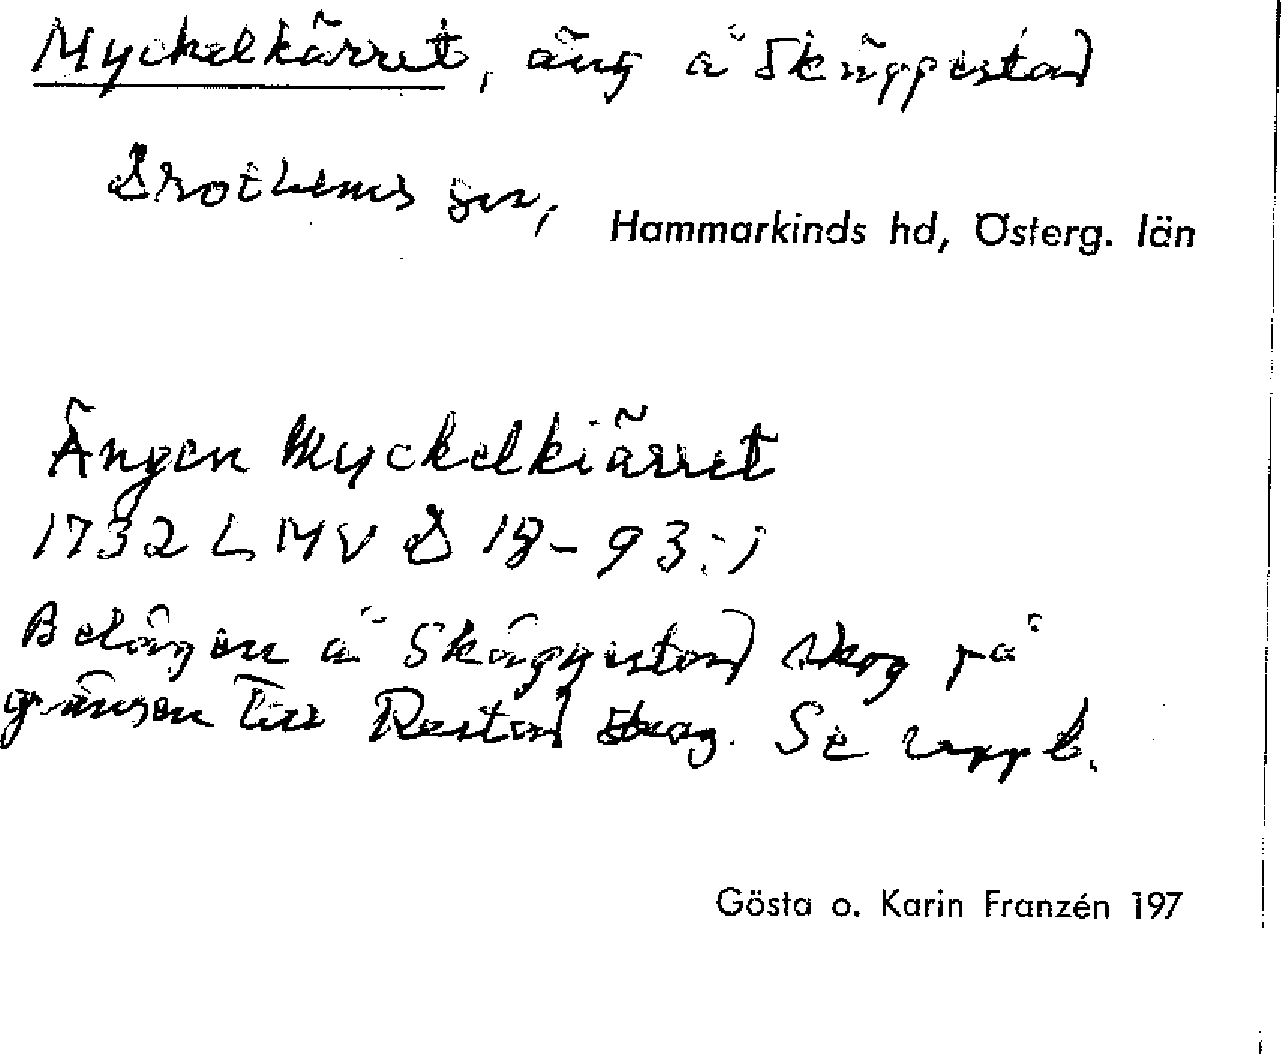 Myckelkärret, äng å Skäggestad
Drothems sn,
Hammarkinds hd, Österg. län
Ängen Myckelkiärret
1732 LMV D 18-93:1
Belägen å Skäggestad skog på
gränsen till Restad skog. Se uppl.
Gösta o. Karin Franzén 197